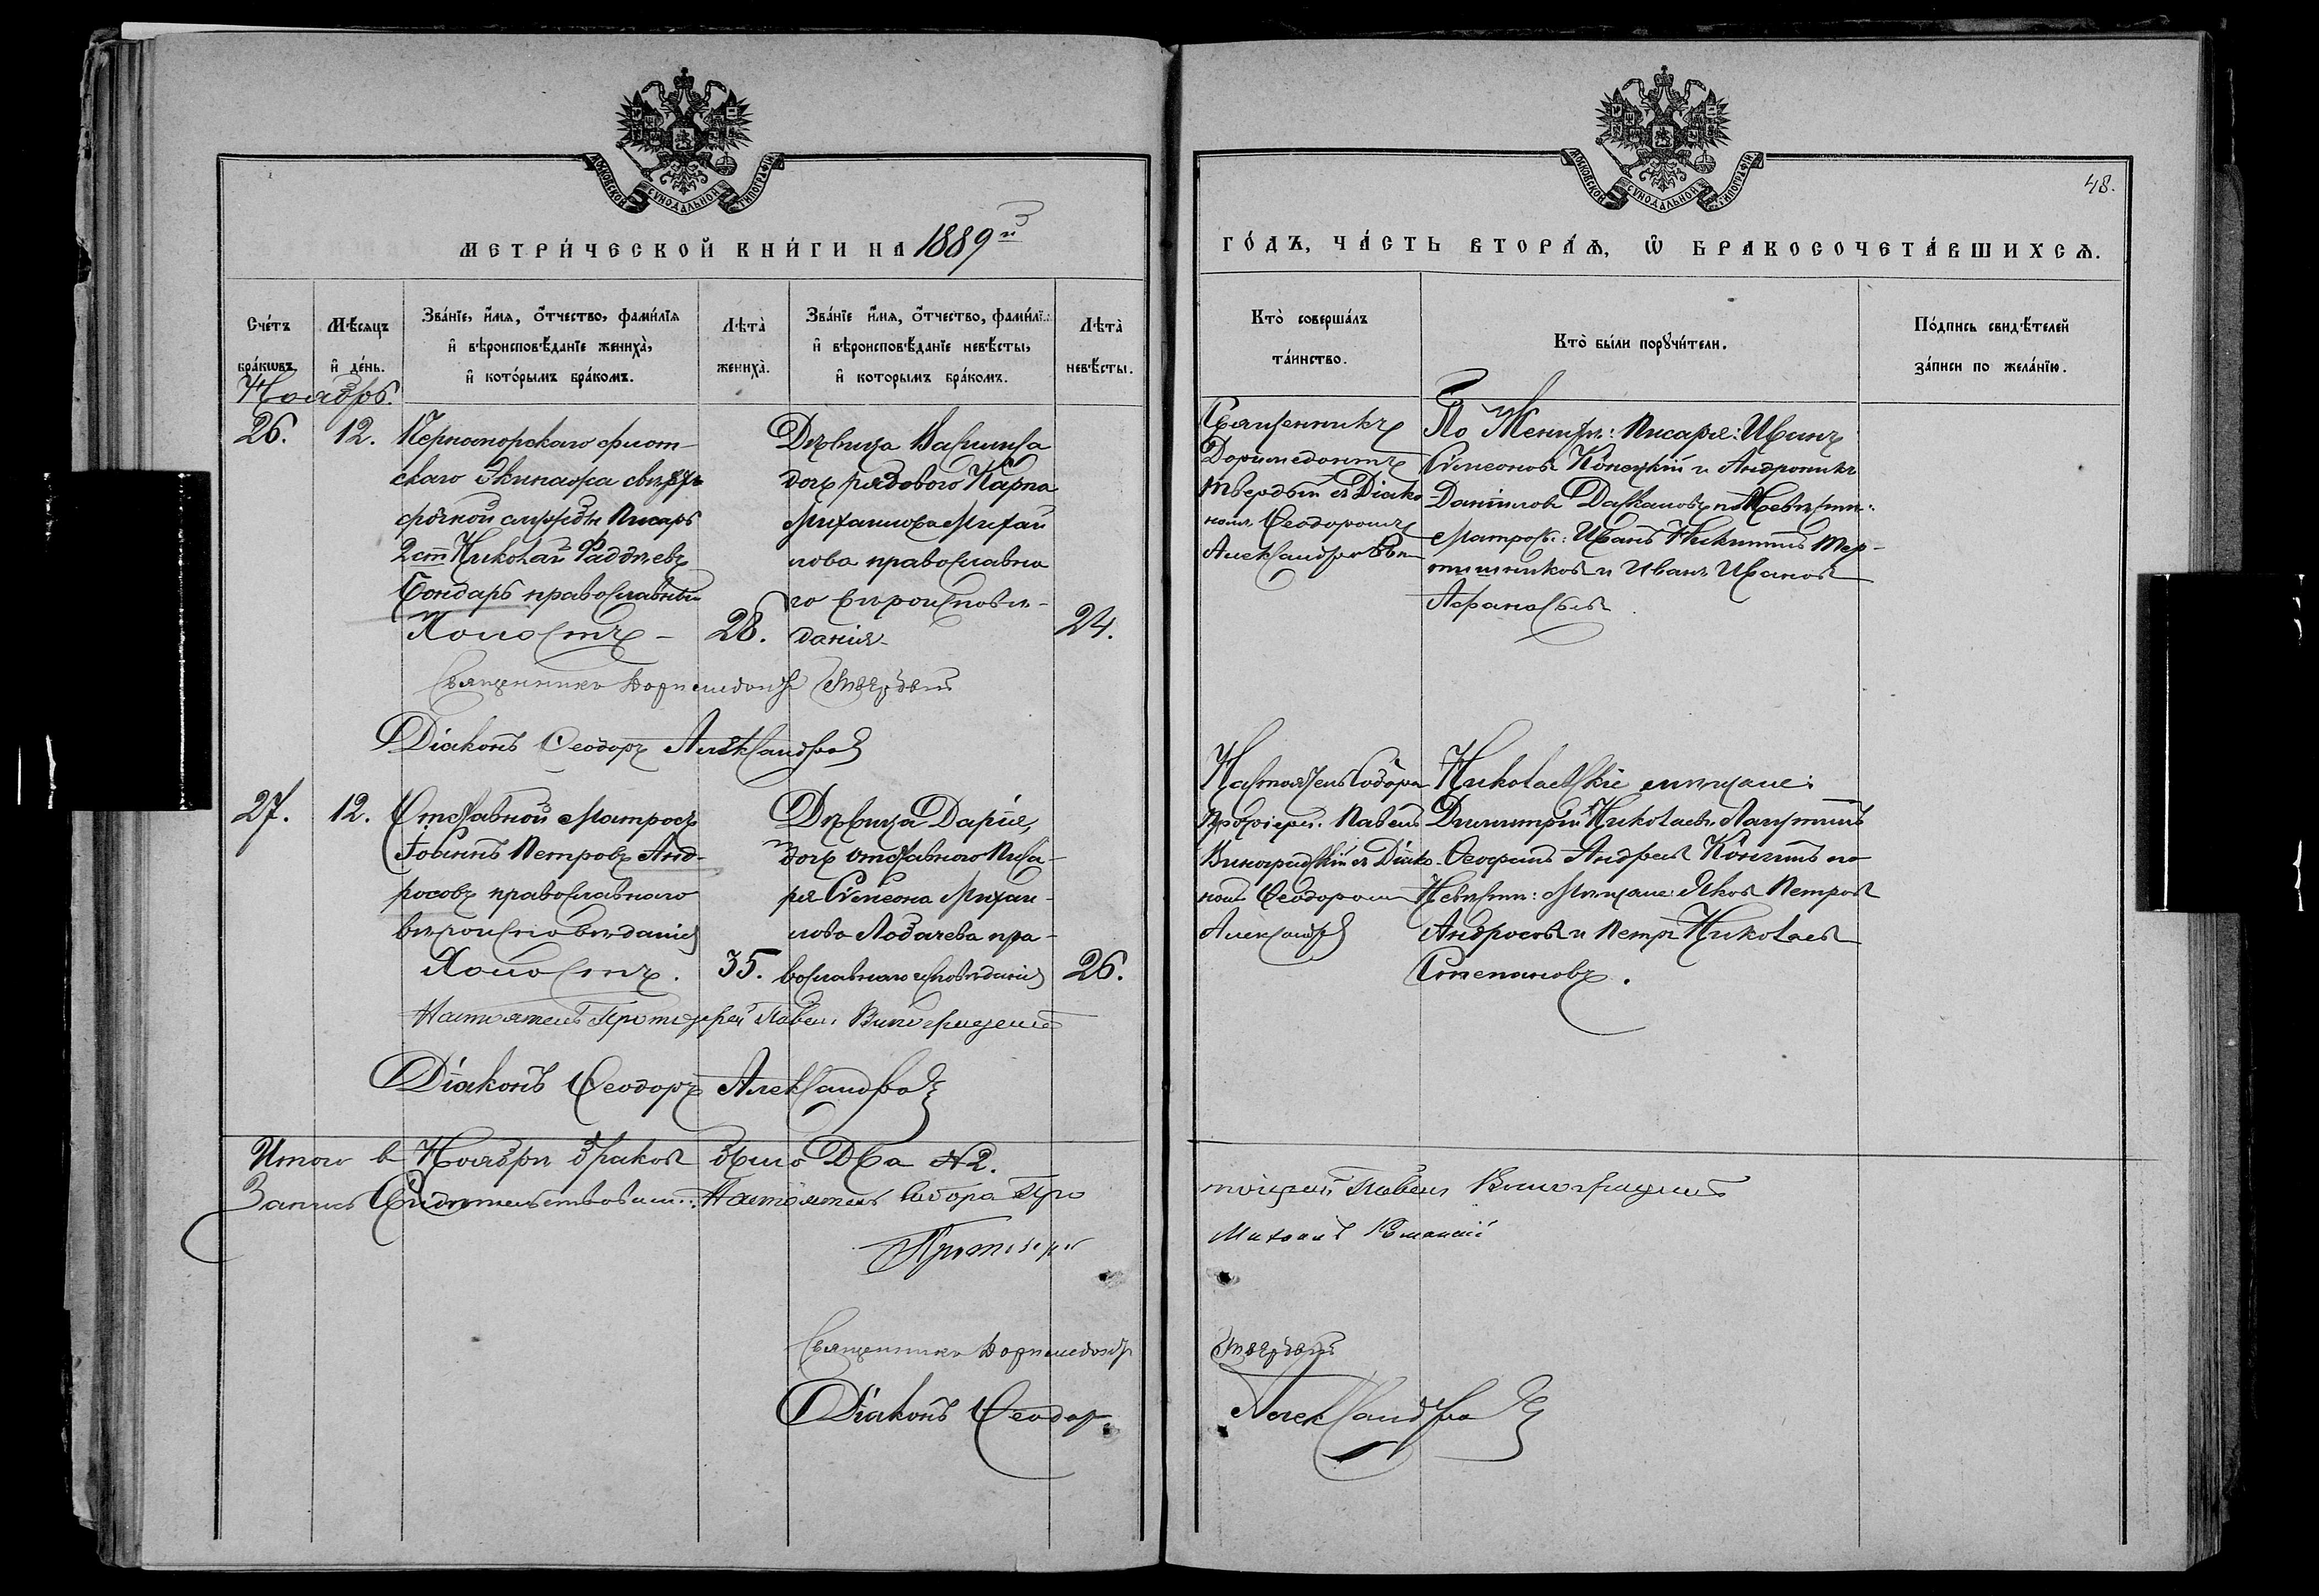 МОСКОВСКОЙ СѴНОДАЛЬНОЙ ТИПОГРАФІИ
МЕТРИ́ЧЕСКОЙ КНИ́ГИ НА 1889й
Сче́тъ бра́ковъ.
Мѣ́сяцъ и҆ де́нь.
Зва́нїе, и҆́мя, ѻ҆́тчество, фами́лїя
и҆ вѣроисповѣ́данїе жениха̀,
и҆ кото́рымъ бра́комъ.
Лѣта̀ жениха̀.
Зва́нїе и҆́мя, ѻ҆́тчество, фами́лї.:
и҆ вѣроисповѣ́данїе невѣ́сты,
и҆ которымъ бра́комъ.
Лѣта̀ невѣ́сты.
Ноябрь.
26.
12.
Черноморскаго флот-
скаго Экипажа сверхъ
срочной службы Писарь
2 ст Николай Фаддѣевъ
Бондарь православный
Холостъ -
28.
Дѣвица Василиса
дочь рядового Карпа
Михаилова Михай
лова православна
го вѣроисповѣ-
данія
24.
Священникъ Доримедонтъ Твердый
Діаконъ Ѳеодоръ Александровъ
27.
12.
Отставной Матросъ
Іоаннъ Петровъ Анд-
росовъ православнаго
вѣроисповѣданія
Холостъ.
35.
Дѣвица Дарія,
дочь отставного Писа-
ря Сѵмеона Михаи-
лова Лобачева пра-
вославнаго исповѣданія
26.
Настоятель Протоіерей Павелъ Виноградскій
Діаконъ Ѳеодоръ Александровъ
Итого в Ноябрѣ браковъ было Два №2.
Запись Свидѣтельствовали: Настоятель Собора Про
Протоіерей
Священникъ Доримедонтъ
Діаконъ Ѳеодоръ
МОСКОВСКОЙ СѴНОДАЛЬНОЙ ТИПОГРАФІИ
48.
ГО́ДЪ, ЧА́СТЬ ВТОРА́Я, Ѡ҆ БРАКОСОЧЕТА́ВШИХСЯ.
Кто̀ соверша́лъ
та́инство.
Кто̀ бы́ли порꙋчи́тели.
По́дпись свидѣ́телей
за́писи по жела́нїю.
Священникъ
Доримедонтъ
Твердый съ Діако
номъ Ѳеодоромъ
Александровым
По Женихѣ: Писаря: Иванъ
Сѵмеоновъ Конецкій и Андроникъ
Даниловъ Даскаловъ по Невѣстѣ:
Матросы: Иванъ Никитинъ
и Иванъ Ивановъ
Афанасьевъ
Настоятель Собора
Протоіерей Павелъ
Виноградскій съ Діако-
номъ Ѳеодоромъ
Александр
Николаевскіе мѣщане:
Димитрій Николаевъ Лапшинъ
Андреевъ по
Невѣстѣ: Мѣщане Яковъ Петровъ
Андросовъ и Петръ Николаевъ
Степановъ.
тоіерей Павелъ Виноградскій
Михаилъ
Твердый
Александровъ